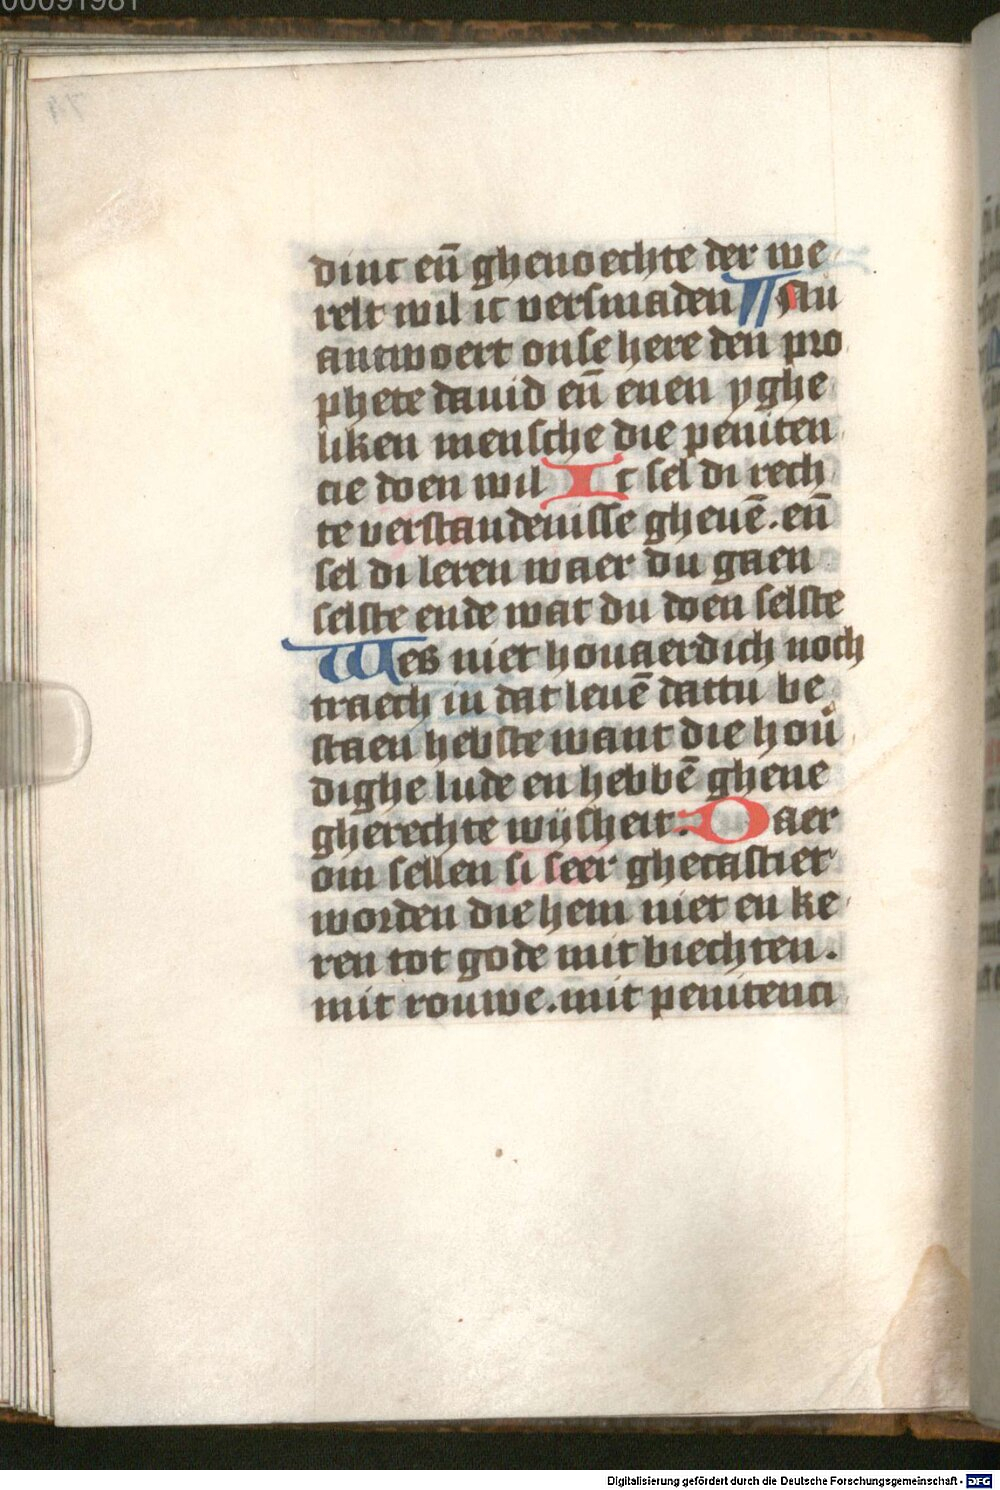 00091981
74
dinc en̄ ghenoechte der we
relt wil ic versmaden ¶ Nu
antwoert onse here den pro
phete dauid en̄ enen yghe
liken mensche die peniten
cie doen wil Ic sel di rech
te verstandenisse gheuē. en̄
sel di leren waer du gaen
selste ende wat du doen selste
Wes niet houaerdich noch
traech in dat leuē dattu be
staen hebste want die hou̅
dighe lude en hebbē ghene
gherechte wijsheit. Daer
om sellen si seer ghecastiet
worden die hem niet en ke
ren tot gode mit biechten.
mit rouwe. mit penitenci
Digitalisierung gefördert durch die Deutsche Forschungsgemeinschaft - DFG